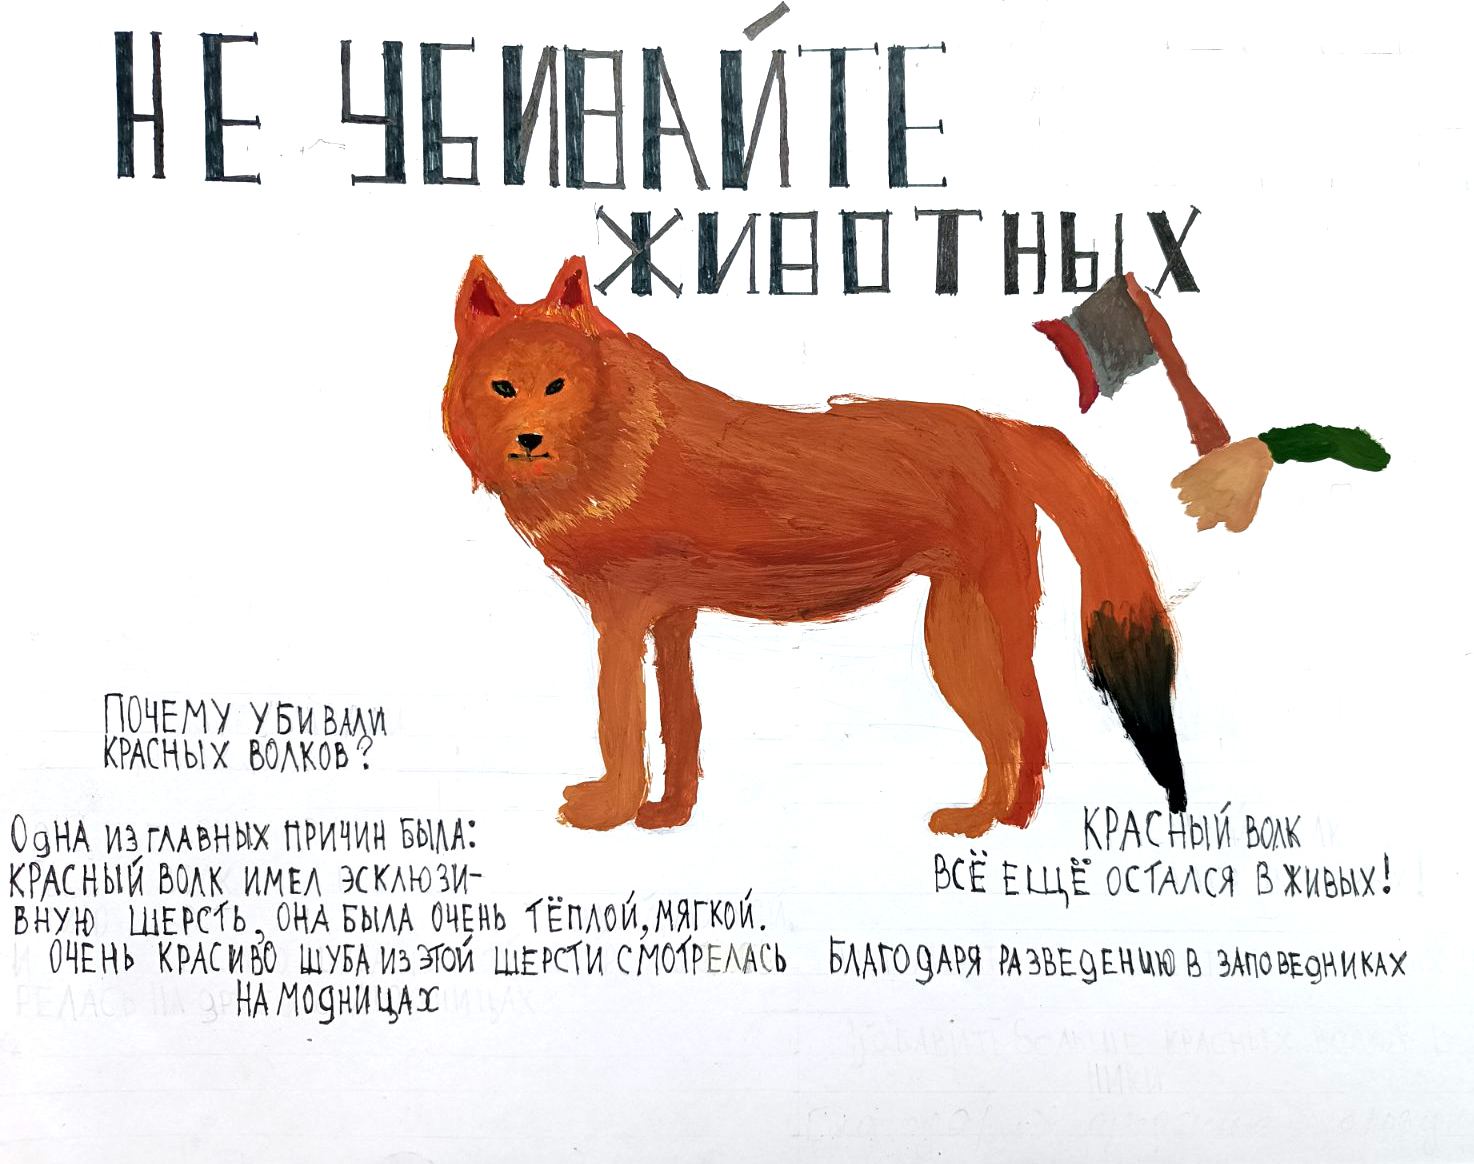 НЕ УБИВАЙТЕ
ЖИВОТНЫХ
ПОЧЕМУ УБИВАЛИ
КРАСНЫХ ВОЛКОВ?
ОдНА ИЗ ГЛАВНЫХ ПРИЧИН БЫЛА:
КРАСНЫЙ ВОЛК ИМЕЛ ЭСКЛЮЗИ-
ВНУЮ ШЕРСТЬ, ОНА БЫЛА ОЧЕНЬ ТЁПЛОЙ, МЯГКОЙ.
ОЧЕНЬ КРАСИВО ШУБА ИЗ ЭТОЙ ШЕРСТИ СМОТРЕЛАСЬ
НА МОдНИЦАХ
КРАСНЫЙ ВОЛК
ВСЁ ЕЩЁ ОСТАЛСЯ В ЖИВЫХ!
БЛАГОдАРЯ РАЗВЕдЕНИЮ В ЗАПОВЕдНИКАХ